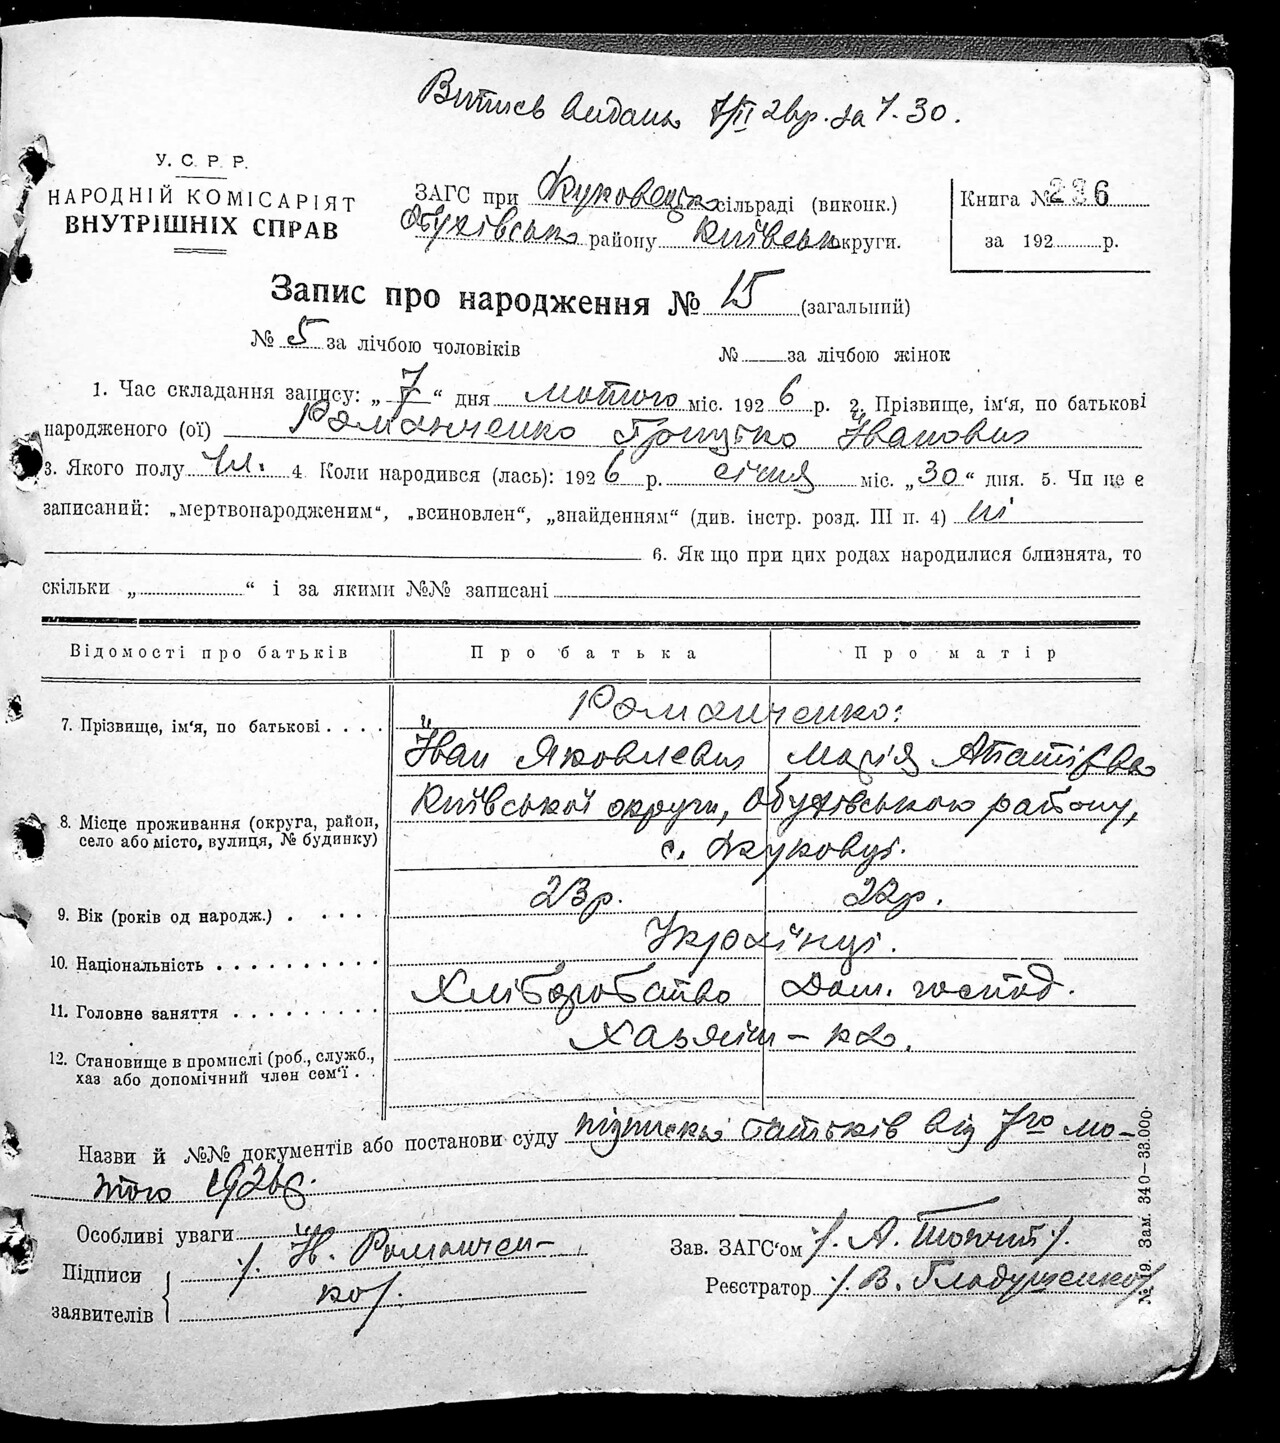 Витись видань 7/II 26р. за 7.30.
У. С. Р. Р.
НАРОДНІЙ КОМІСАРІЯТ
ВНУТРІШНІХ СПРАВ
ЗАГС при Жуковецьк сільраді (виконк.)
Обухівськ району Київськ округи.
Книга № 236
за 192 р.
Запис про народження № 15 (загальний)
№ 5 за лічбою чоловіків
№ за лічбою жінок
1. Час складання запису: „ 7 “ дня лютого міс. 192 6 р. 2. Прізвище, ім‘я, по батькові
народженого (ої) Романченко Грицько Іванович
3. Якого полу Чл. 4. Коли народився (лась): 192 6 р. січня міс. „ 30 “ дня. 5. Чи це є
записаний: „мертвонародженим“, „всиновлен“, „знайденням“ (див. інстр. розд. III п. 4) ні
6. Як що при цих родах народилися близнята, то
скільки „ “ і за якими №№ записані
Відомості про батьків
Про батька
Про матір
7. Прізвище, ім‘я, по батькові . . . .
Романченко:
Іван Яковлевич
Марія
8. Місце проживання (округа, район,
село або місто, вулиця, № будинку)
Київської округи, Обухівського району,
с. Жуковці.
9. Вік (років од народж.) . . . . .
23р.
22р.
10. Національність . . . . . . . . . .
Українці.
11. Головне заняття . . . . . . . . .
Хліборобство
Дом. господ.
12. Становище в промислі (роб., служб.,
хаз або допомічний член сем‘ї . .
Хазяїн – ка.
Назви й №№ документів або постанови суду підписка батьків від 7го лю–
того 1926р.
Особливі уваги
Підписи
заявителів
/. Ів. Романчен–
ко/.
Зав. ЗАГС‘ом /. А. /.
Реєстратор /. В. Гладущенко/
№ 19. Зам. 340—33.000.